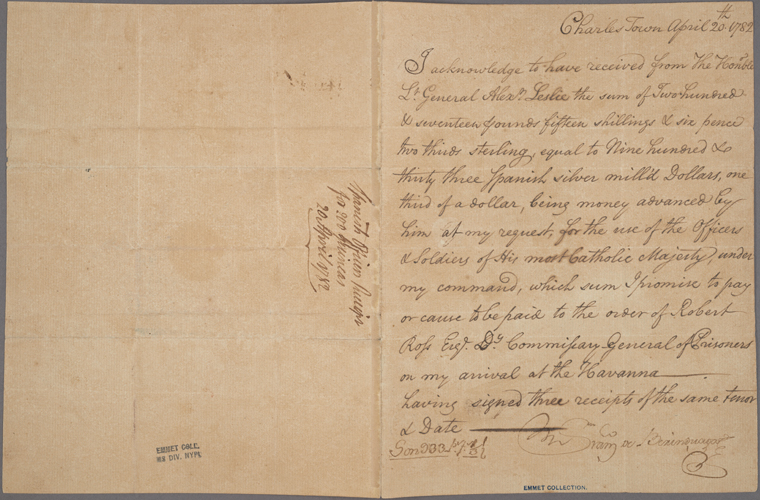 Charles Town April 20th 1782
I acknowledge to have received from The Honble
Lt. General Alexr. Leslie the sum of Two hundred
& seventeen pounds fifteen shillings & six pence
two thirds sterling, equal to Nine hundred &
thirty three Spanish silver mill'd Dollars, one
third of a dollar, being money advanced by
him at my request, for the use of the Officers
& Soldiers of His most Catholic Majesty, under
my command, which sum I promise to pay
or cause to be paid to the order of Robert
Ross Esqr. Dy. Commissary General of Prisoners
on my arrival at the Havanna
having signed three receipts of the same tenor
& Date
Son 933
Spanish Officers Receipt
for 200 Guineas
20 April 1782
EMMET COLL.
MS DIV. NYPL
EMMET COLLECTION.